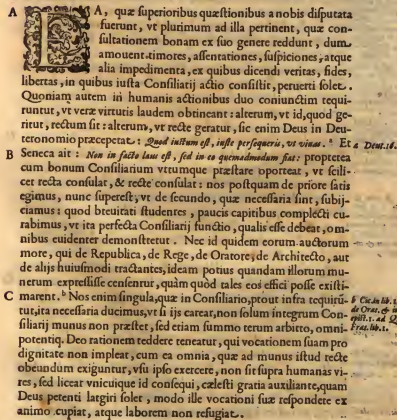 A EA, quæ superioribus quæstionibus a nobis disputata
fuerunt, vt plurimum ad illa pertinent, quæ con-
sultationem bonam ex suo genere reddunt, dum
amouent timores, assentationes, suspiciones, atque
alia impedimenta, ex quibus dicendi veritas, fides,
libertas, in quibus iusta Consiliarij actio consistit, peruerti solet.
Quoniam autem in humanis actionibus duo coniunctim requi-
runtur, vt veræ virtutis laudem obtineant: alterum, vt id, quod ge-
ritur, rectum sit: alterum, vt recte geratur, sic enim Deus in Deu-
teronomio præcepta: Quod iustum est, iuste persequeris, vt viuas. a Et a Deut. 16.
B Seneca ait: Non in facto laus est, sed in eo quemadmodum fiat: propterea
cum bonum Consiliarium vtrumque præstare oporteat, vt scili-
cet recta consulat, & recte consulat: nos postquam de priore satis
egimus, nunc superest, vt de secundo, quæ necessaria sint, subij-
ciamus: quod breuitati studentes, paucis capitibus complecti cu-
rabimus, vt ita perfecta Consiliarij functio, qualis esse debeat, om-
nibus euidenter demonstretur. Nec id quidem eorum auctorum
more, qui de Republica, de Rege, de Oratore, de Architecto, aut
de alijs huiusmodi tractantes, ideam potius quandam illorum mu-
nerum expressisse censentur, quàm quod tales eos effici posse existi-
C marent. b Nos enim singula, quæ in Consiliario, prout infra requirũ- b Cic. in lib. 1.
tur, ita necessaria ducimus, vt si ijs careat, non solum integrum Con- de Orat. & in
siliarij munus non præstet, sed etiam summo rerum arbitro, omni- epist. 1. ad Q.
potentiq. Deo rationem reddere teneatur, qui vocationem suam pro Frat. lib. 1.
dignitate non impleat, cum ea omnia, quæ ad munus istud recte
obeundum exiguntur, vsu ipso exercere, non sit supra humanas vi-
res, sed liceat vnicuique id consequi, cælesti gratia auxiliante, quam
Deus petenti largiri solet, modo ille vocationi suæ respondere ex
animo cupiat, atque laborem non refugiat.